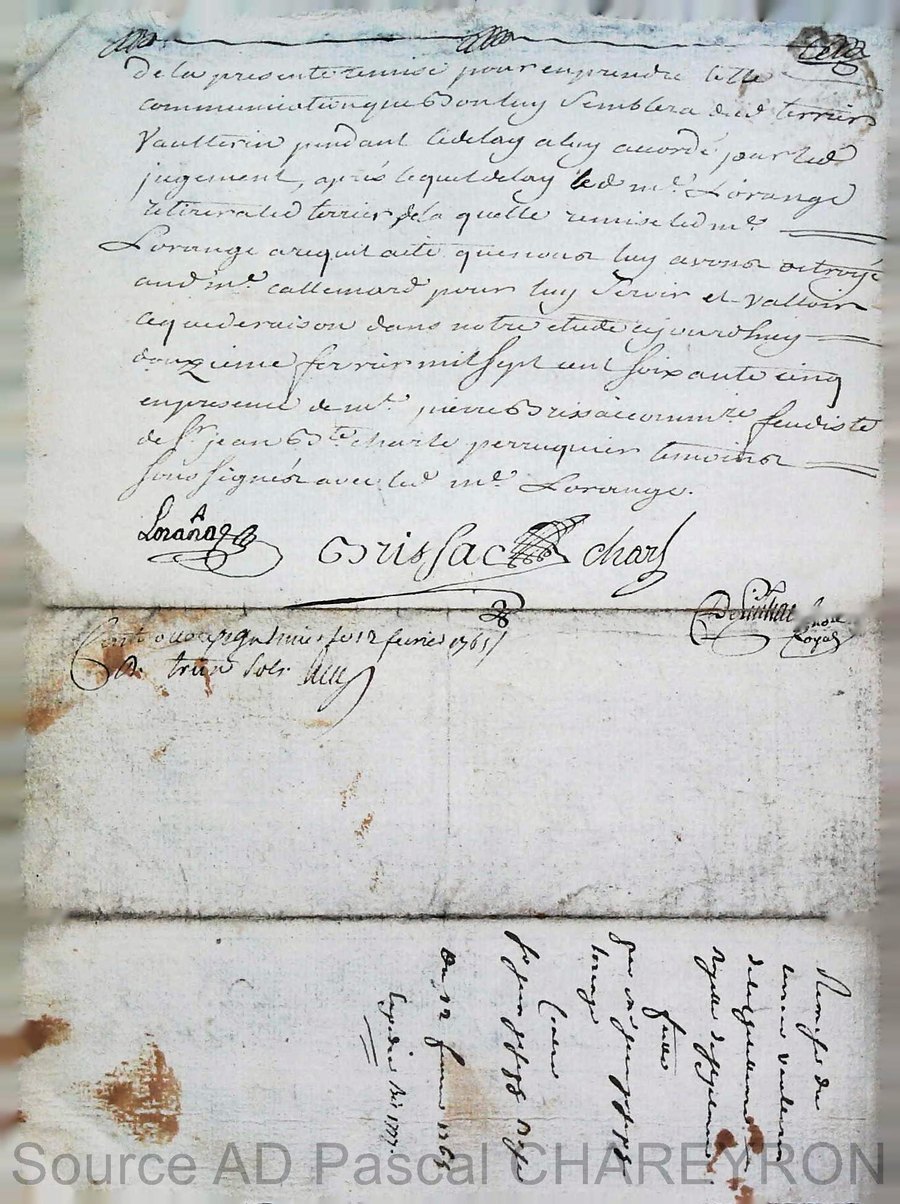 telle
de la presente remise pour en prendre telle
communication que Bon luy Semblera dud terrier
Vaulterin pendant ledelay a luy accordé par led
jugement, aprés lequel delay led me. Lorange
retirera led terrier, de la quelle remise led me.
Lorange a requit acte que nous luy avons octroyé
aud me. callemard pour luy Servir et valloir
ce que de raison dans notre etude cejourdhuy
douzieme fevrier mil sept cent soixante cinq
en presence de me. pierre Brissac commre. feudiste
de Sr. jean Bte. charle perruquier temoins
soussignés avec led me. Lorange.
Lorange Brissac charl
Royal
le 12 fevrier 1765
R. treize sols
Remise du
terrier vaulterin
Royalle
faitte
par me
Lorange
du 12 fevrier 1765
Source AD Pascal CHAREYRON